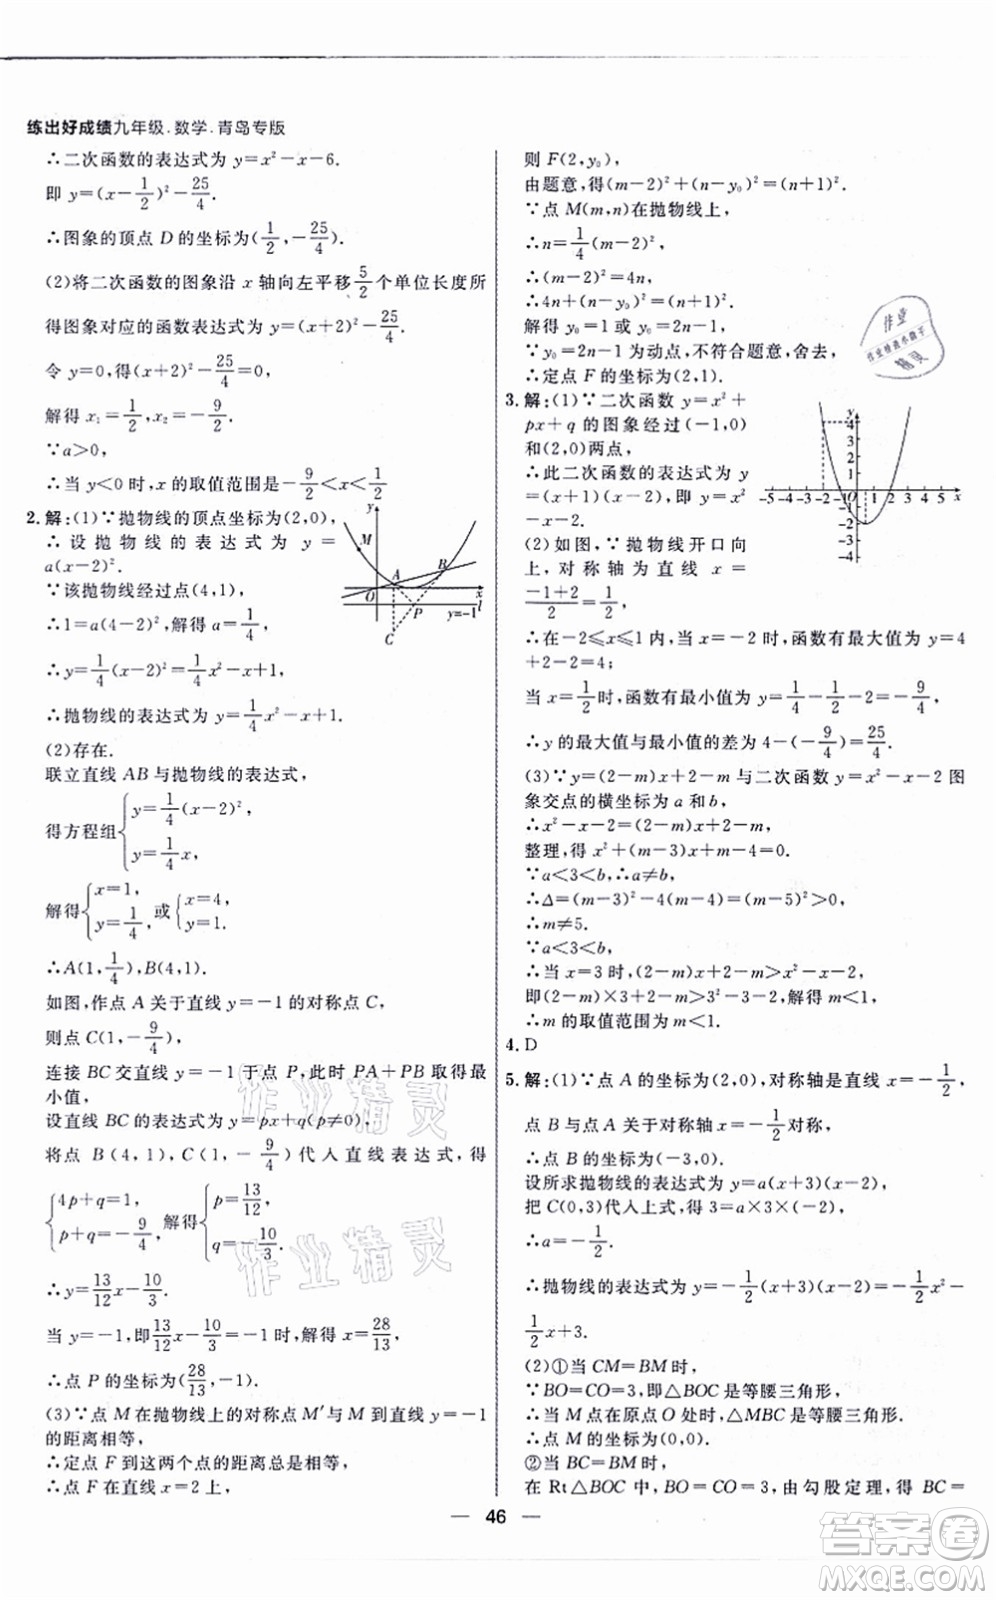 练出好成绩九年级.数学.青岛专版
∴二次函数的表达式为 y=x²-x-6.
即 y=(x-1/2)²-25/4.
∴图象的顶点 D 的坐标为(1/2,-25/4).
(2)将二次函数的图象沿 x 轴向左平移5/2个单位长度所
得图象对应的函数表达式为 y=(x+2)²-25/4.
令 y=0,得(x+2)²-25/4=0,
解得 x₁=1/2,x₂=-9/2.
∵a>0,
∴当 y<0时,x 的取值范围是-9/2<x<1/2
2.解:(1)∵抛物线的顶点坐标为(2,0),
∴设抛物线的表达式为 y=
a(x-2)².
∵该抛物线经过点(4,1),
∴1=a(4-2)²,解得 a=1/4,
∴y=1/4(x-2)²=1/4x²-x+1,
∴抛物线的表达式为 y=1/4x²-x+1.
y
M
A
B
O
x
P
y=-1
l
C
(2)存在.
联立直线 AB 与抛物线的表达式,
得方程组{y=1/4(x-2)²,
y=1/4x,
解得{x=1,
y=1/4,或{x=4,
y=1.
∴A(1,1/4),B(4,1).
如图,作点 A 关于直线 y=-1 的对称点 C,
则点 C(1,-9/4),
连接 BC 交直线 y=-1 于点 P,此时 PA+PB 取得最
小值,
设直线 BC 的表达式为 y=px+q(p≠0),
将点 B(4,1),C(1,-9/4)代入直线表达式,得
{4p+q=1,
p+q=-9/4,解得{p=13/12,
q=-10/3.
∴y=13/12x-10/3.
当 y=-1,即13/12x-10/3=-1时,解得 x=28/13,
∴点 P 的坐标为(28/13,-1).
(3)∵点 M 在抛物线上的对称点 M′与 M 到直线 y=-1
的距离相等,
∴定点 F 到这两个点的距离总是相等,
∴点 F 在抛物线的对称轴直线 x=2 上,
则 F(2,y₀),
由题意,得(m-2)²+(n-y₀)²=(n+1)².
∵点 M(m,n)在抛物线上,
∴n=1/4(m-2)²,
∴(m-2)²=4n,
∴4n+(n-y₀)²=(n+1)².
解得 y₀=1 或 y₀=2n-1,
∵y₀=为动点,不符合题意,舍去,
∴定点 F 的坐标为(2,1).
3.解:(1)∵二次函数 y=x²+
px+q 的图象经过(-1,0)
和(2,0)两点,
∴此二次函数的表达式为 y
=(x+1)(x-2),即 y=x²
-x-2.
y
4
3
2
1
-5 -4 -3 -2 -1 O 1 2 3 4 5 x
-1
-2
-3
-4
(2)如图,∵抛物线开口向
上,对称轴为直线 x=
-1+2/2=1/2,
∴在-2≤x≤1 内,当 x=-2 时,函数有最大值为 y=4
+2-2=4;
当 x=1/2时,函数有最小值为 y=1/4-1/2-2=-9/4,
∴y 的最大值与最小值的差为 4-(-9/4)=25/4.
(3)∵y=(2-m)x+2-m 与二次函数 y=x²-x-2 图
象交点的横坐标为 a 和 b,
∴x²-x-2=(2-m)x+2-m,
整理,得 x²+(m-3)x+m-4=0.
∵a<3<b,∴a≠b,
∴Δ=(m-3)²-4(m-4)=(m-5)²>0,
∴m≠5.
∵a<3<b,
∴当 x=3 时,(2-m)x+2-m>x²-x-2,
即(2-m)×3+2-m>3²-3-2,解得 m<1.
∴m 的取值范围为 m<1.
4.D
5.解:(1)∵点 A 的坐标为(2,0),对称轴是直线 x=-1/2,
点 B 与点 A 关于对称轴 x=-1/2对称,
∴点 B 的坐标为(-3,0).
设所求抛物线的表达式为 y=a(x+3)(x-2),
把 C(0,3)代入上式,得 3=a×3×(-2),
∴a=-1/2.
∴抛物线的表达式为 y=-1/2(x+3)(x-2)=-1/2x²-
1/2x+3.
(2)①当 CM=BM 时,
∵BO=CO=3,即△BOC 是等腰三角形,
∴当点 M 在原点 O 处时,△MBC 是等腰三角形.
∴点 M 的坐标为(0,0).
②当 BC=BM 时,
在 Rt△BOC 中,BO=CO=3,由勾股定理,得 BC=
46
作业精灵
作业精灵
作业
作业精灵
答案卷
MXQE.COM